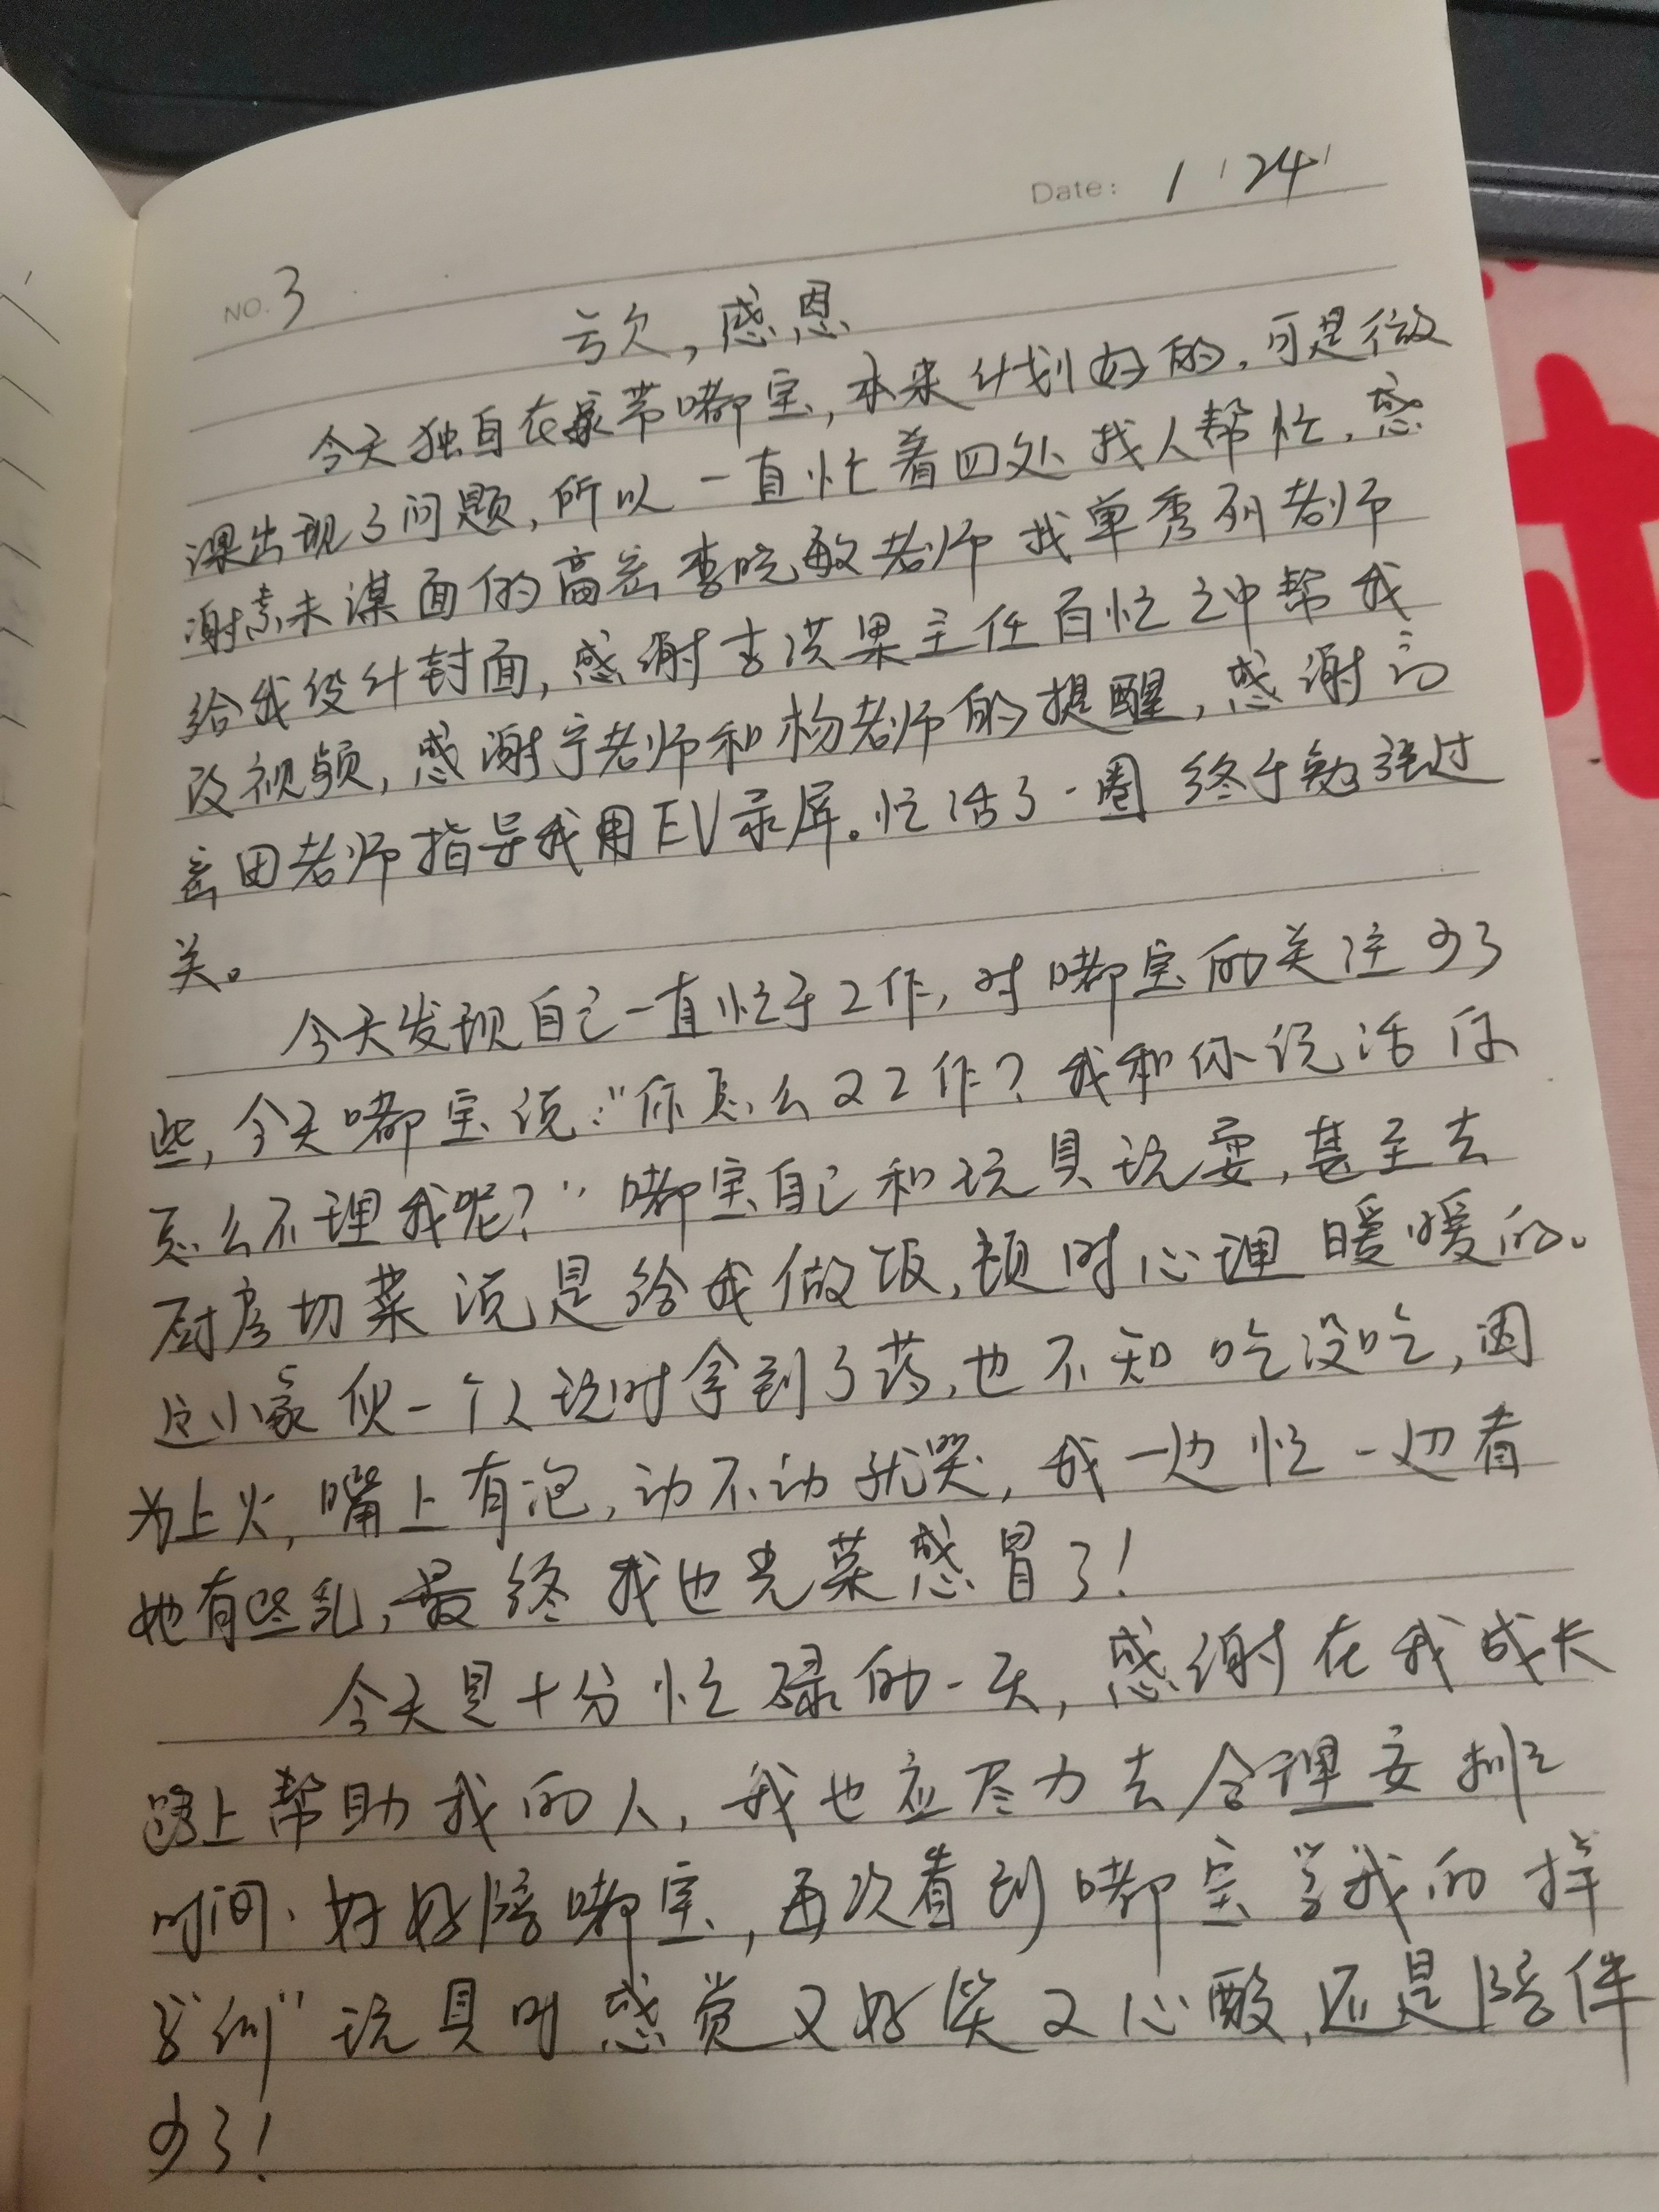 Date: 1 24
NO. 3
亏欠,感恩
今天独自在家带嘟宝,本来计划好的,可是微
课出现了问题,所以一直忙着四处找人帮忙,感
谢素未谋面的高密李晓敏老师找单秀列老师
给我设计封面,感谢李洪果主任百忙之中帮我
改视频,感谢宁老师和杨老师的提醒,感谢高
密田老师指导我用EV录屏。忙活了一圈终于勉强过
关。
今天发现自己一直忙于工作,对嘟宝的关注少了
些,今天嘟宝说:"你怎么又工作?我和你说话你
怎么不理我呢?"嘟宝自己和玩具玩耍,甚至去
厨房切菜说是给我做饭,顿时心理暖暖的。
这小家伙一个人玩时拿到了药,也不知吃没吃,因
为上火,嘴上有泡,动不动就哭,我一边忙一边看
她有些乱,最终我也光荣感冒了!
今天是十分忙碌的一天,感谢在我成长
路上帮助我的人,我也应尽力去合理安排
时间.好好陪嘟宝,再次看到嘟宝学我的样
子"训"玩具时感觉又好笑又心酸,还是陪伴
少了!